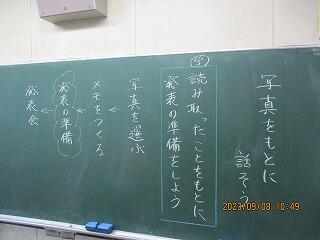 写真をもとに
話そう
学
読み取ったことをもとに
発表の準備をしよう
写真を選ぶ
↓
メモをつくる
↓
発表の準備
↓
発表会
2023/09/08 10:49